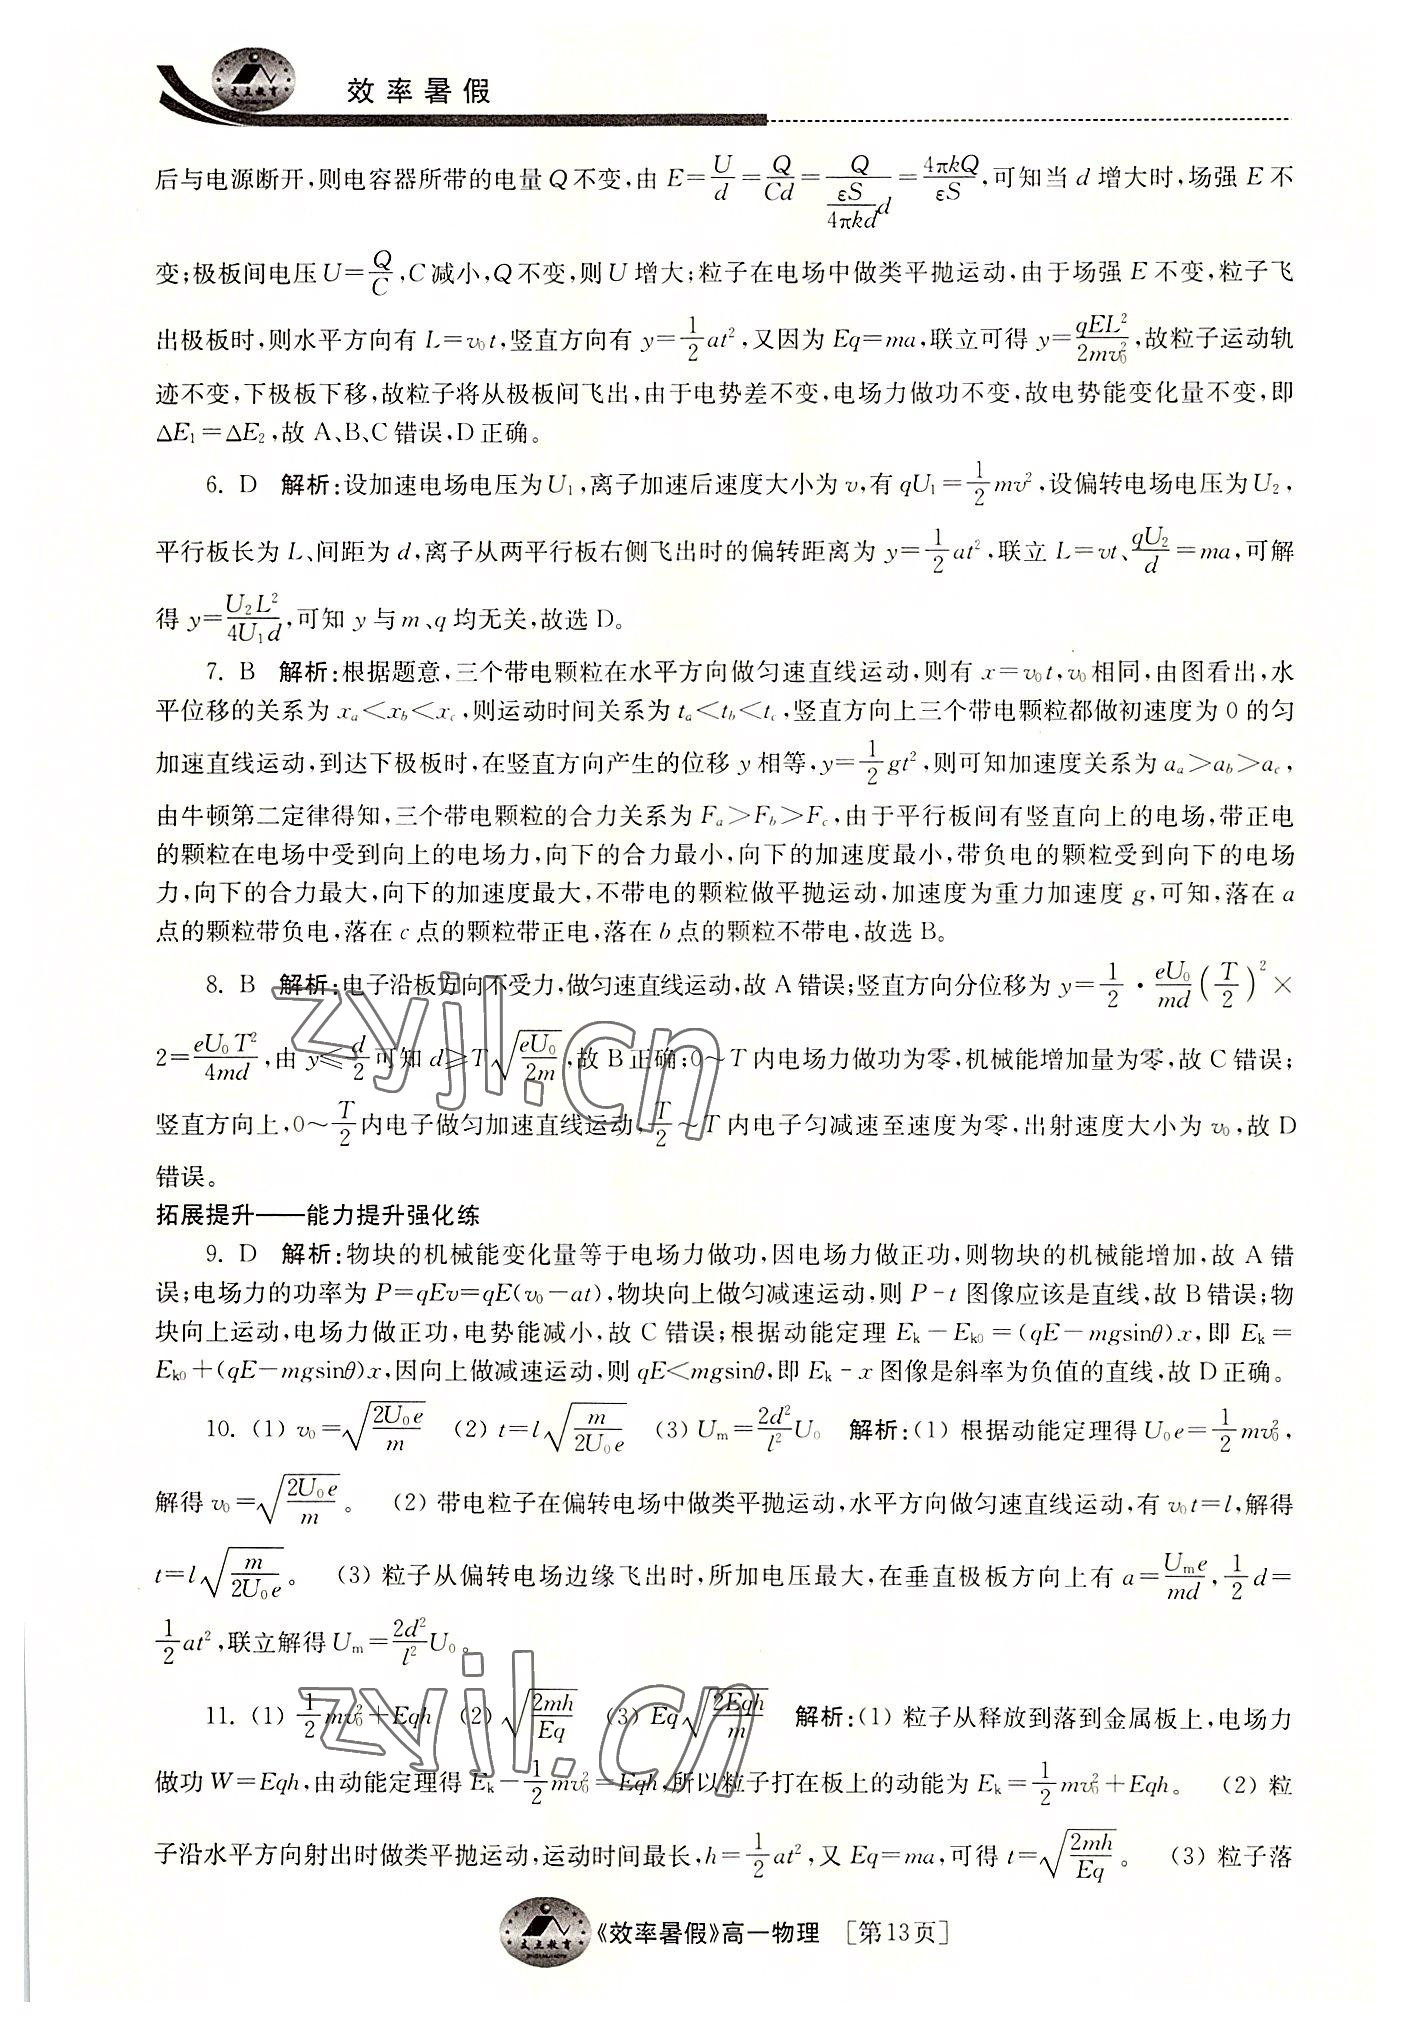 效率暑假
后与电源断开,则电容器所带的电量Q不变,由 E=U/d=Q/Cd=Q/(εS/4πkd d)=4πkQ/εS,可知当 d 增大时,场强 E 不
变;极板间电压U=Q/C,C减小,Q不变,则U增大;粒子在电场中做类平抛运动,由于场强 E 不变,粒子飞
出极板时,则水平方向有 L=v₀t,竖直方向有 y=1/2at²,又因为 Eq=ma,联立可得 y=qEL²/2mv₀²,故粒子运动轨
迹不变,下极板下移,故粒子将从极板间飞出,由于电势差不变,电场力做功不变,故电势能变化量不变,即
ΔE₁=ΔE₂,故 A、B、C错误,D正确。
6. D 解析:设加速电场电压为U₁,离子加速后速度大小为 v,有 qU₁=1/2mv²,设偏转电场电压为U₂,
平行板长为 L、间距为 d,离子从两平行板右侧飞出时的偏转距离为 y=1/2at²,联立 L=vt、qU₂/d=ma,可解
得 y=U₂L²/4U₁d,可知 y 与 m、q 均无关,故选 D。
7. B 解析:根据题意,三个带电颗粒在水平方向做匀速直线运动,则有 x=v₀t,v₀相同,由图看出,水
平位移的关系为 xₐ<x_b<x_c,则运动时间关系为 tₐ<t_b<t_c,竖直方向上三个带电颗粒都做初速度为 0 的匀
加速直线运动,到达下极板时,在竖直方向产生的位移 y 相等,y=1/2gt²,则可知加速度关系为 aₐ>a_b>a_c,
由牛顿第二定律得知,三个带电颗粒的合力关系为 Fₐ>F_b>F_c,由于平行板间有竖直向上的电场,带正电
的颗粒在电场中受到向上的电场力,向下的合力最小,向下的加速度最小,带负电的颗粒受到向下的电场
力,向下的合力最大,向下的加速度最大,不带电的颗粒做平抛运动,加速度为重力加速度 g,可知,落在 a
点的颗粒带负电,落在 c 点的颗粒带正电,落在 b 点的颗粒不带电,故选 B。
8. B 解析:电子沿板方向不受力,做匀速直线运动,故 A 错误;竖直方向分位移为 y=1/2·eU₀/md(T/2)²×
2=eU₀T²/4md,由 y≤d/2可知 d≥T√(eU₀/2m),故 B正确;0~T 内电场力做功为零,机械能增加量为零,故 C 错误;
竖直方向上,0~T/2内电子做匀加速直线运动,T/2~T 内电子匀减速至速度为零,出射速度大小为 v₀,故 D
错误。
拓展提升——能力提升强化练
9. D 解析:物块的机械能变化量等于电场力做功,因电场力做正功,则物块的机械能增加,故 A 错
误;电场力的功率为 P=qEv=qE(v₀-at),物块向上做匀减速运动,则 P-t 图像应该是直线,故 B错误;物
块向上运动,电场力做正功,电势能减小,故 C 错误;根据动能定理 Eₖ-Eₖ₀=(qE-mgsinθ)x,即 Eₖ=
Eₖ₀+(qE-mgsinθ)x,因向上做减速运动,则 qE<mgsinθ,即 Eₖ-x 图像是斜率为负值的直线,故 D 正确。
10. (1) v₀=√(2U₀e/m) (2) t=l√(m/2U₀e) (3) Uₘ=2d²/l² U₀ 解析:(1) 根据动能定理得 U₀e=1/2mv₀²,
解得 v₀=√(2U₀e/m)。 (2) 带电粒子在偏转电场中做类平抛运动,水平方向做匀速直线运动,有 v₀t=l,解得
t=l√(m/2U₀e)。 (3) 粒子从偏转电场边缘飞出时,所加电压最大,在垂直极板方向上有 a=Uₘe/md,1/2d=
1/2at²,联立解得 Uₘ=2d²/l² U₀。
11. (1) 1/2mv₀²+Eqh (2) √(2mh/Eq) (3) Eq√(2Eqh/m) 解析:(1) 粒子从释放到落到金属板上,电场力
做功 W=Eqh,由动能定理得 Eₖ-1/2mv₀²=Eqh,所以粒子打在板上的动能为 Eₖ=1/2mv₀²+Eqh。 (2) 粒
子沿水平方向射出时做类平抛运动,运动时间最长,h=1/2at²,又 Eq=ma,可得 t=√(2mh/Eq)。 (3) 粒子落
《效率暑假》高一物理 [第13页]
zyjl.cn
zyjl.cn